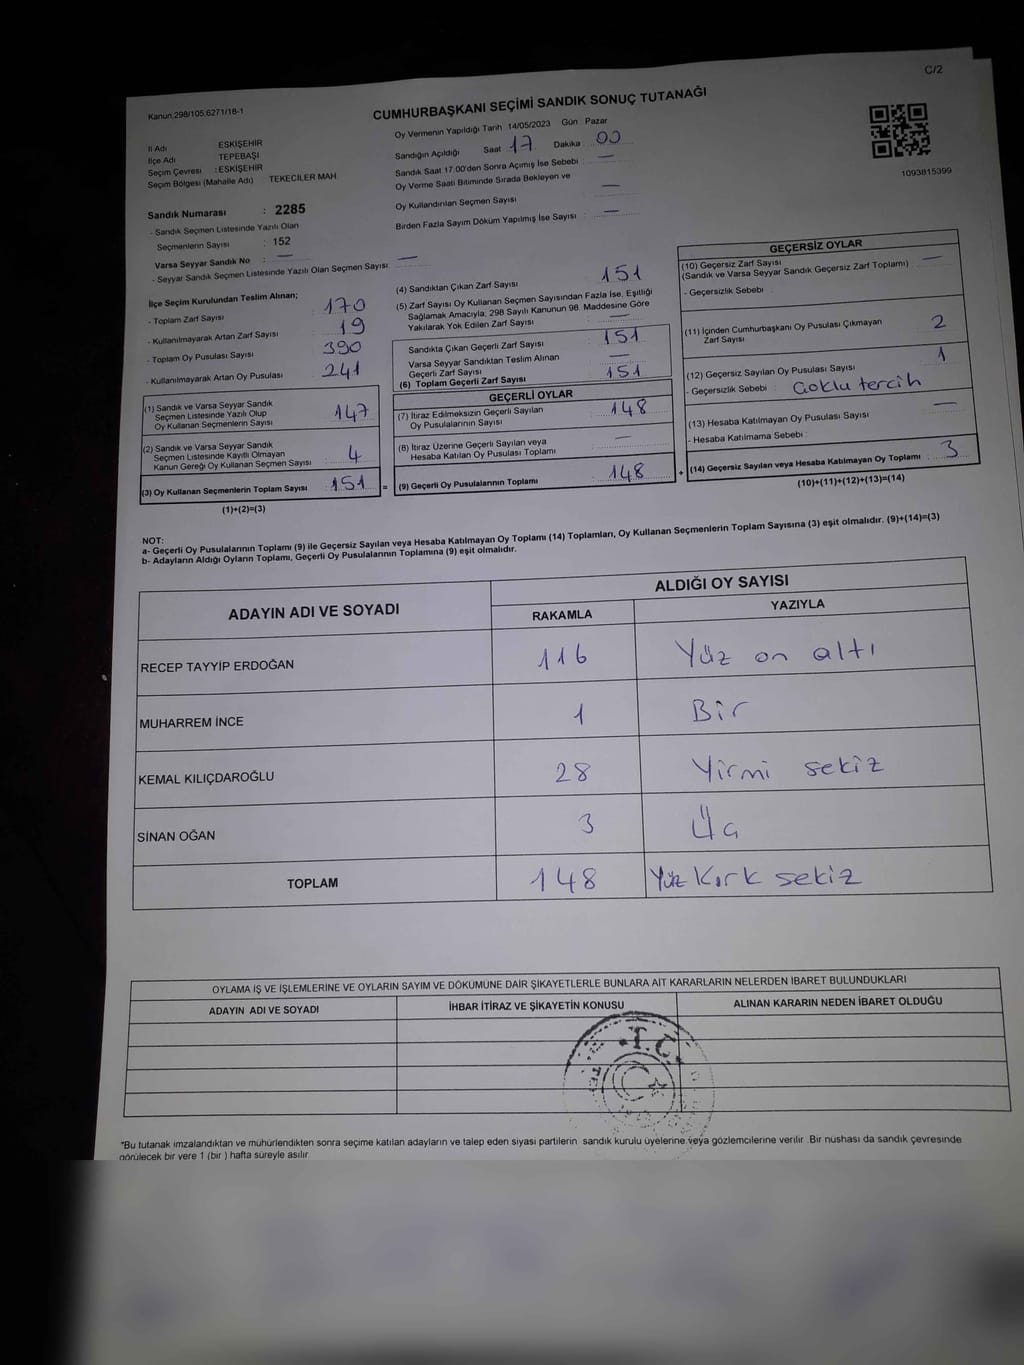 C/2
Kanun,298/105,6271/18-1
CUMHURBAŞKANI SEÇİMİ SANDIK SONUÇ TUTANAĞI
Oy Vermenin Yapıldığı Tarih 14/05/2023 Gün Pazar
İl Adı ESKİŞEHİR
İlçe Adı TEPEBAŞI
Seçim Çevresi : ESKİŞEHİR
Seçim Bölgesi (Mahalle Adı) TEKECİLER MAH
Sandık Numarası : 2285
- Sandık Seçmen Listesinde Yazılı Olan
Seçmenlerin Sayısı : 152
Varsa Seyyar Sandık No : —
- Seyyar Sandık Seçmen Listesinde Yazılı Olan Seçmen Sayısı: —
Sandığın Açıldığı Saat 17 Dakika 00
Sandık Saat 17.00'den Sonra Açımış İse Sebebi : —
Oy Verme Saati Bitiminde Sırada Bekleyen ve
Oy Kullandırılan Seçmen Sayısı : —
Birden Fazla Sayım Döküm Yapılmış İse Sayısı : —
1093815399
İlçe Seçim Kurulundan Teslim Alınan;
- Toplam Zarf Sayısı : 170
- Kullanılmayarak Artan Zarf Sayısı : 19
- Toplam Oy Pusulası Sayısı : 390
- Kullanılmayarak Artan Oy Pusulası : 241
(1) Sandık ve Varsa Seyyar Sandık
Seçmen Listesinde Yazılı Olup
Oy Kullanan Seçmenlerin Sayısı : 147
(2) Sandık ve Varsa Seyyar Sandık
Seçmen Listesinde Kayıtlı Olmayan
Kanun Gereği Oy Kullanan Seçmen Sayısı : 4
(3) Oy Kullanan Seçmenlerin Toplam Sayısı : 151 =
(1)+(2)=(3)
(4) Sandıktan Çıkan Zarf Sayısı : 151
(5) Zarf Sayısı Oy Kullanan Seçmen Sayısından Fazla İse, Eşitliği
Sağlamak Amacıyla; 298 Sayılı Kanunun 98. Maddesine Göre
Yakılarak Yok Edilen Zarf Sayısı : —
Sandıkta Çıkan Geçerli Zarf Sayısı : 151
Varsa Seyyar Sandıktan Teslim Alınan
Geçerli Zarf Sayısı : —
(6) Toplam Geçerli Zarf Sayısı : 151
GEÇERLİ OYLAR
(7) İtiraz Edilmeksizin Geçerli Sayılan
Oy Pusulalarının Sayısı : 148
(8) İtiraz Üzerine Geçerli Sayılan veya
Hesaba Katılan Oy Pusulası Toplamı : —
(9) Geçerli Oy Pusulalarının Toplamı : 148 +
GEÇERSİZ OYLAR
(10) Geçersiz Zarf Sayısı : —
(Sandık ve Varsa Seyyar Sandık Geçersiz Zarf Toplamı)
- Geçersizlik Sebebi :
(11) İçinden Cumhurbaşkanı Oy Pusulası Çıkmayan
Zarf Sayısı : 2
(12) Geçersiz Sayılan Oy Pusulası Sayısı : 1
- Geçersizlik Sebebi : Çoklu tercih
(13) Hesaba Katılmayan Oy Pusulası Sayısı : —
- Hesaba Katılmama Sebebi :
(14) Geçersiz Sayılan veya Hesaba Katılmayan Oy Toplamı : 3
(10)+(11)+(12)+(13)=(14)
NOT:
a- Geçerli Oy Pusulalarının Toplamı (9) ile Geçersiz Sayılan veya Hesaba Katılmayan Oy Toplamı (14) Toplamları, Oy Kullanan Seçmenlerin Toplam Sayısına (3) eşit olmalıdır. (9)+(14)=(3)
b- Adayların Aldığı Oyların Toplamı, Geçerli Oy Pusulalarının Toplamına (9) eşit olmalıdır.
ADAYIN ADI VE SOYADI ALDIĞI OY SAYISI
RAKAMLA YAZIYLA
RECEP TAYYİP ERDOĞAN 116 Yüz on altı
MUHARREM İNCE 1 Bir
KEMAL KILIÇDAROĞLU 28 Yirmi sekiz
SİNAN OĞAN 3 Üç
TOPLAM 148 Yüz Kırk sekiz
OYLAMA İŞ VE İŞLEMLERİNE VE OYLARIN SAYIM VE DÖKÜMÜNE DAİR ŞİKAYETLERLE BUNLARA AİT KARARLARIN NELERDEN İBARET BULUNDUKLARI
ADAYIN ADI VE SOYADI İHBAR İTİRAZ VE ŞİKAYETİN KONUSU ALINAN KARARIN NEDEN İBARET OLDUĞU
T.C.
*Bu tutanak imzalandıktan ve mühürlendikten sonra seçime katılan adayların ve talep eden siyasi partilerin sandık kurulu üyelerine veya gözlemcilerine verilir. Bir nüshası da sandık çevresinde
görülecek bir yere 1 (bir ) hafta süreyle asılır